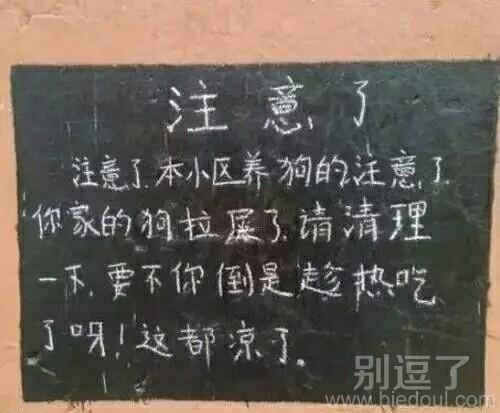 注意了
注意了.本小区养狗的注意了.
你家的狗拉屎了.请清理
一下.要不你倒是趁热吃
了呀!这都凉了.
别逗了
www.biedoul.com